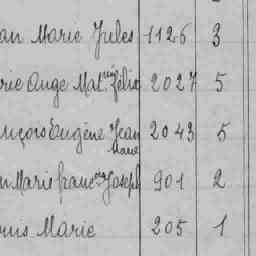 an Marie Jules 1126 3
rie Ange Mat.rin Félix 2027 5
nçois Eugène Jean Marie 2043 5
n Marie franc.ois Joseph 901 2
ouis Marie 205 1